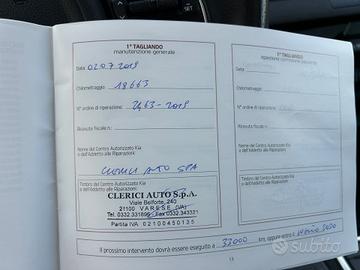 1° TAGLIANDO
manutenzione generale
Data 02.07.2019
Chilometraggio: 18663
N° ordine di riparazione: 2463-2019
Ricevuta fiscale n.:
Nome del Centro Autorizzato Kia
e dell'addetto alle Riparazioni:
CLERICI AUTO SPA
Timbro del Centro Autorizzato Kia
e dell'addetto alle Riparazioni:
CLERICI AUTO S.p.A.
Viale Belforte, 240
21100 VARESE (VA)
Tel. 0332.331899 Fax 0332.343321
Partita IVA 02100450135
1° TAGLIANDO
Data
Chilometraggio:
N° ordine di riparazione:
Ricevuta fiscale n.:
Nome del Centro Autorizzato Kia
e dell'addetto alle Riparazioni:
Timbro del Centro Autorizzato Kia
e dell'addetto alle Riparazioni:
Il prossimo intervento dovrà essere eseguito a 33000 km, oppure entro il
subito
SET